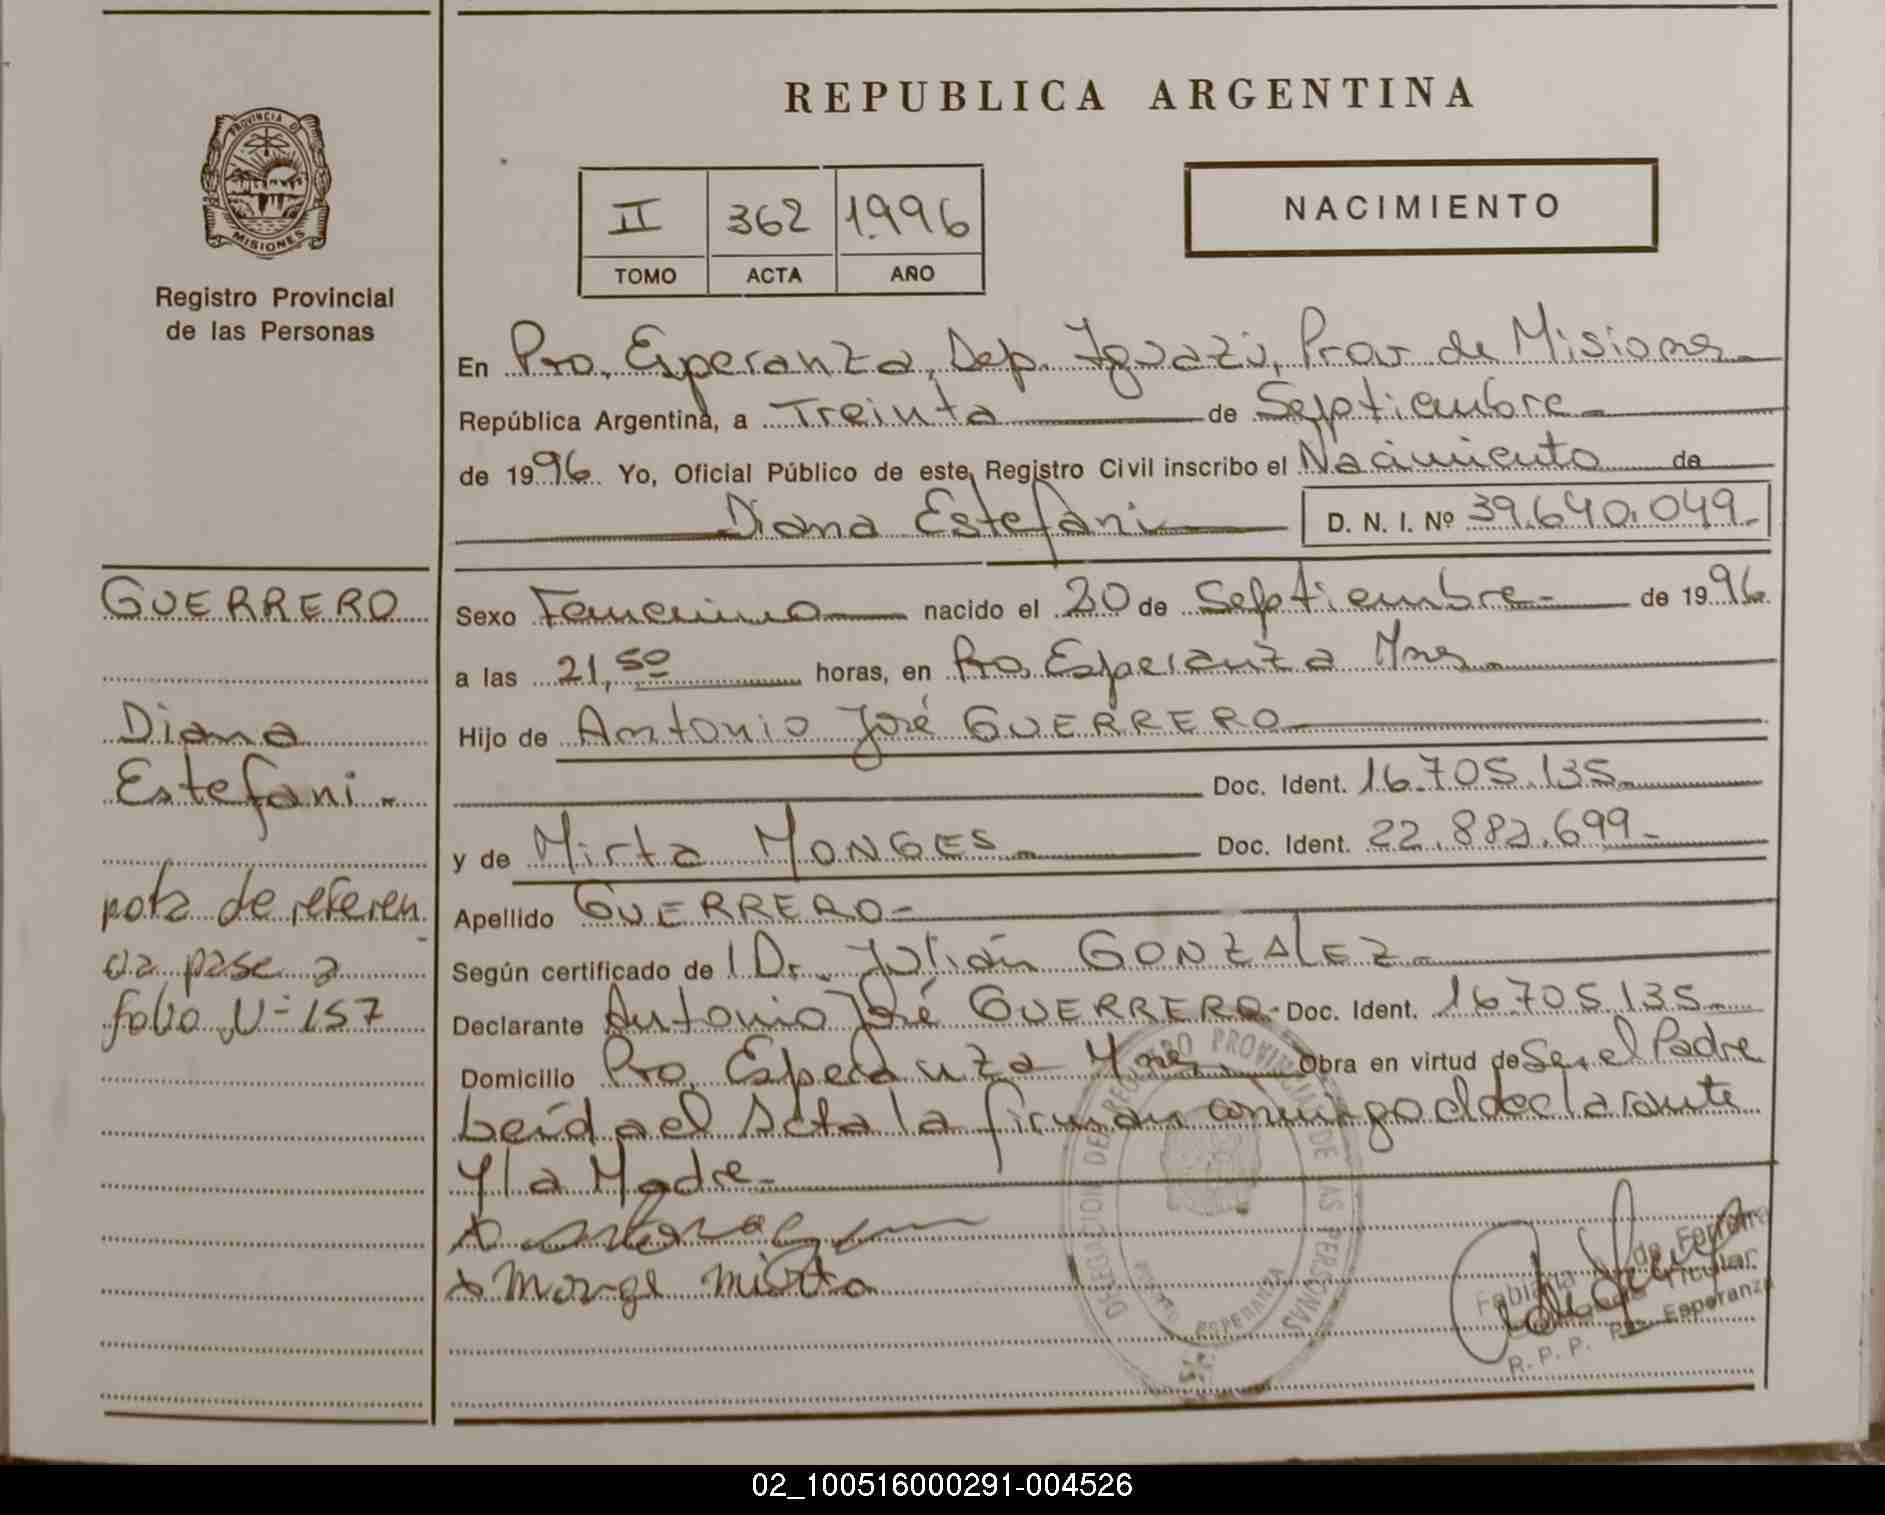 REPUBLICA ARGENTINA
PROVINCIA DE
MISIONES
Registro Provincial
de las Personas
II 362 1.996
TOMO ACTA AÑO
NACIMIENTO
En Pto. Esperanza, Dep. Iguazú, Prov de Misiones
República Argentina, a Treinta de Septiembre
de 1996. Yo, Oficial Público de este Registro Civil inscribo el Nacimiento de
Diana Estefani D. N. I. Nº 39.640.049.
GUERRERO
Diana
Estefani.-
nota de referen
cia pase a
folio Nº 157
Sexo Femenino nacido el 20 de Septiembre de 1996.
a las 21,50 horas, en Pto. Esperanza Mnes.
Hijo de Antonio José GUERRERO
Doc. Ident. 16.705.135
y de Mirta MONGES Doc. Ident. 22.882.699
Apellido GUERRERO
Según certificado de Dr. Julián GONZALEZ
Declarante Antonio José GUERRERO Doc. Ident. 16.705.135
Domicilio Pto. Esperanza Mnes. Obra en virtud de Ser el Padre
Leída el Acta la firman conmigo el declarante
y la Madre
Monge Mirta
DELEGACION DEL REGISTRO PROVINCIAL DE LAS PERSONAS
PUERTO ESPERANZA
de Ferreira
Titular
R. P. P. Pto. Esperanza
02_100516000291-004526